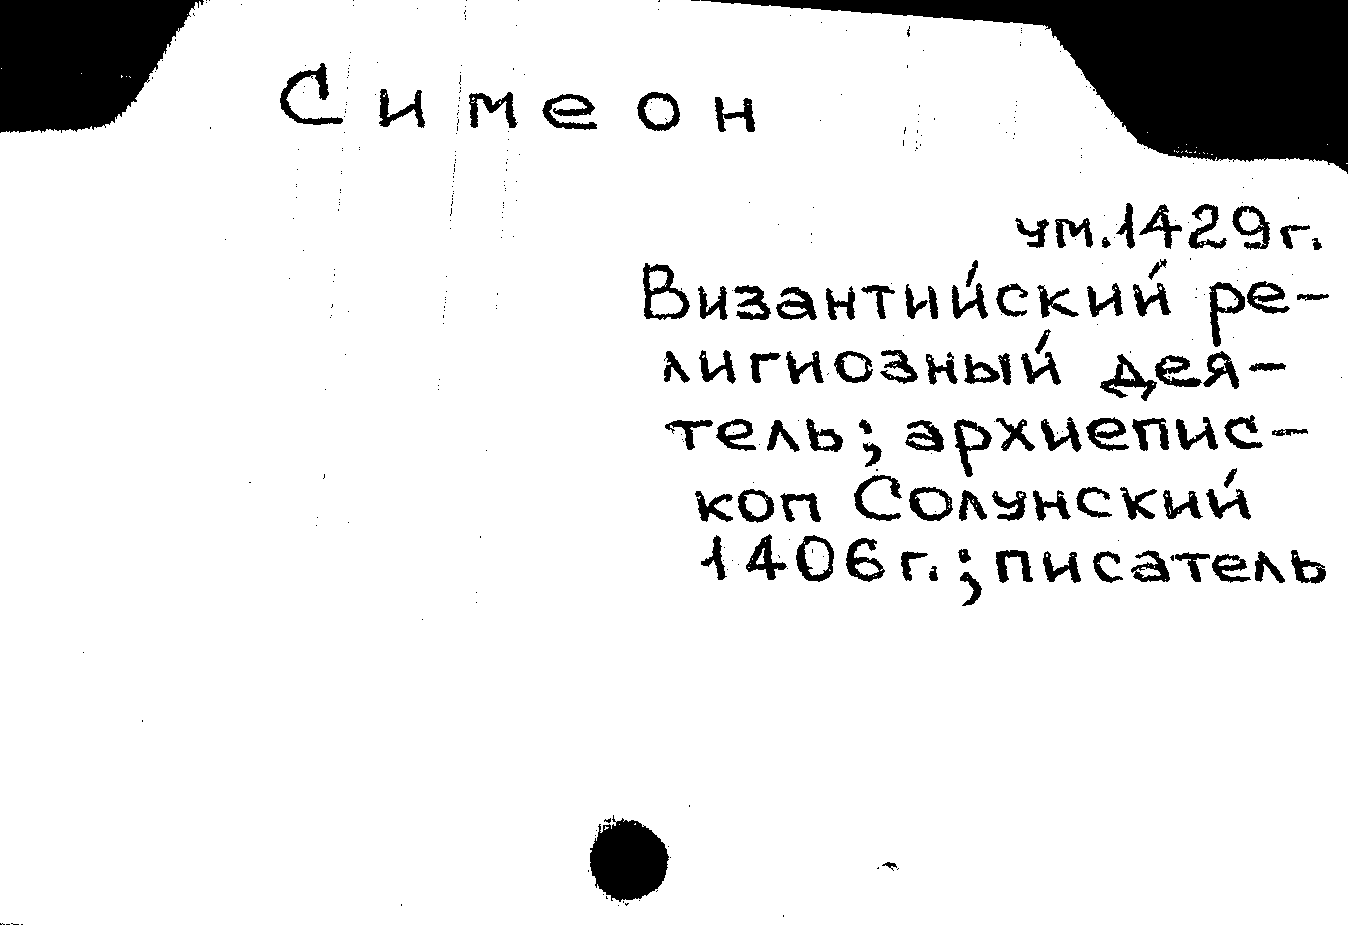 Симеон
ум.1429г.
Византийский ре-
лигиозный дея-
тель; архиепис-
коп Солунский
1406г.; писатель